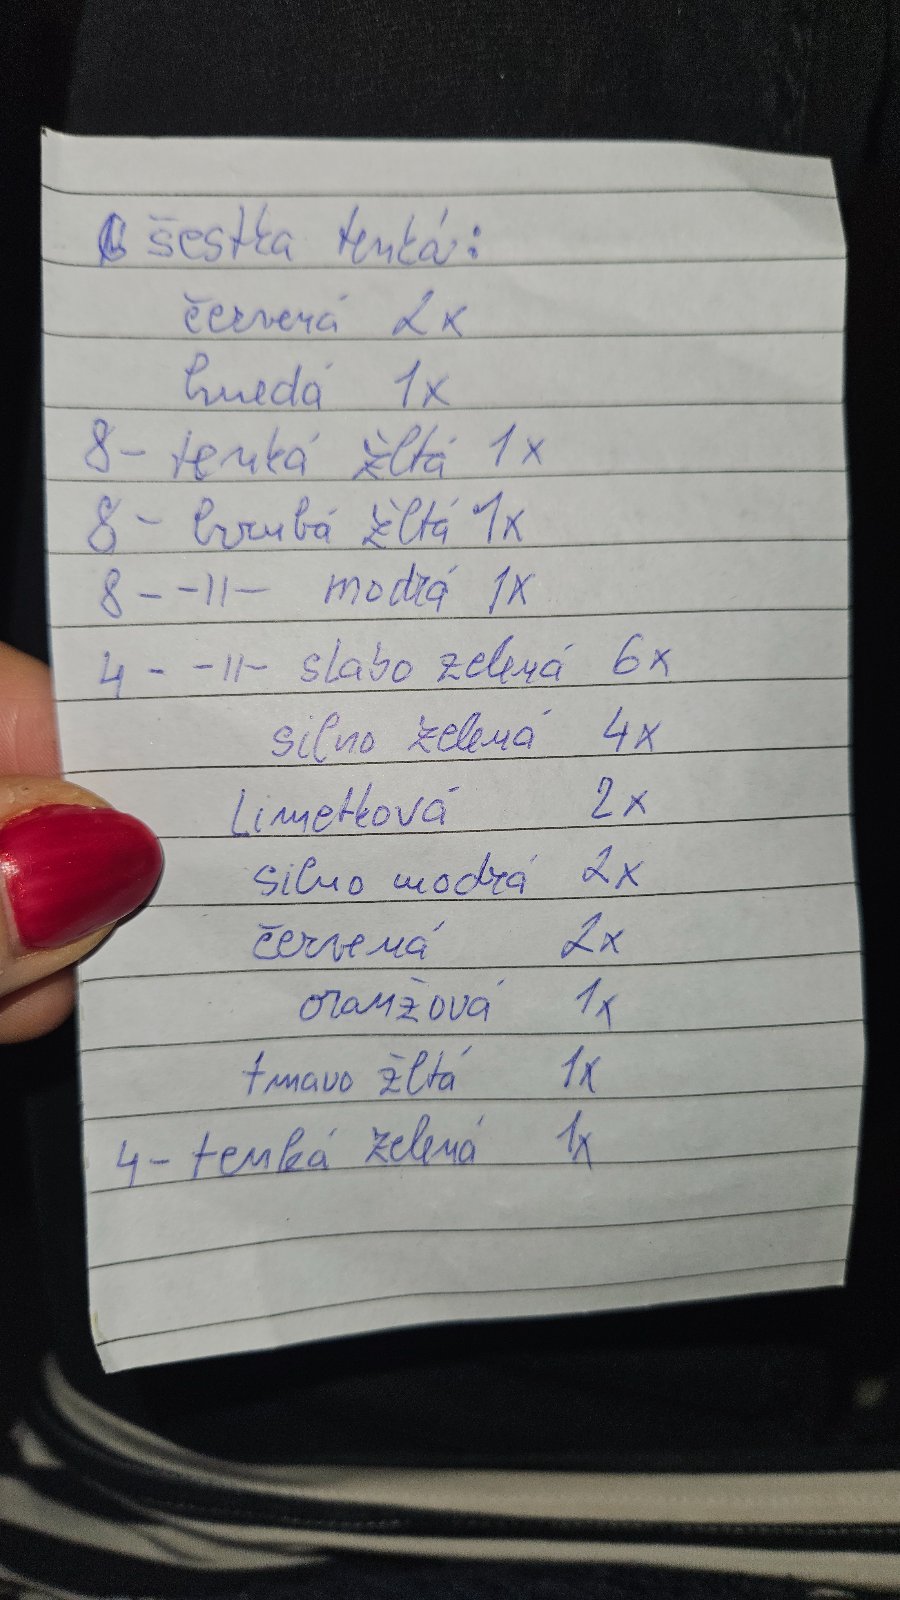 6 šestka tenká:
červená 2x
hnedá 1x
8- tenká žltá 1x
8- hrubá žltá 1x
8- -11- modrá 1x
4- -11- slabo zelená 6x
silno zelená 4x
Limetková 2x
silno modrá 2x
červená 2x
oranžová 1x
tmavo žltá 1x
4- tenká zelená 1x